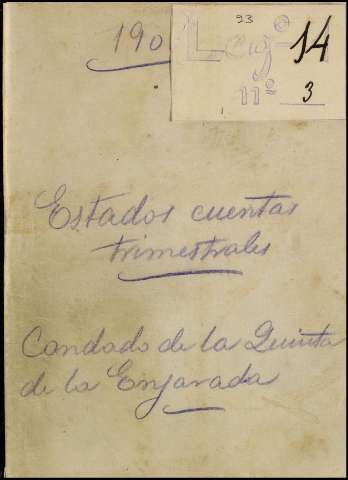 93
190
Leg-º 14
nº 3
Estados cuentas
trimestrales
Condado de la Quinta
de la Enjarada